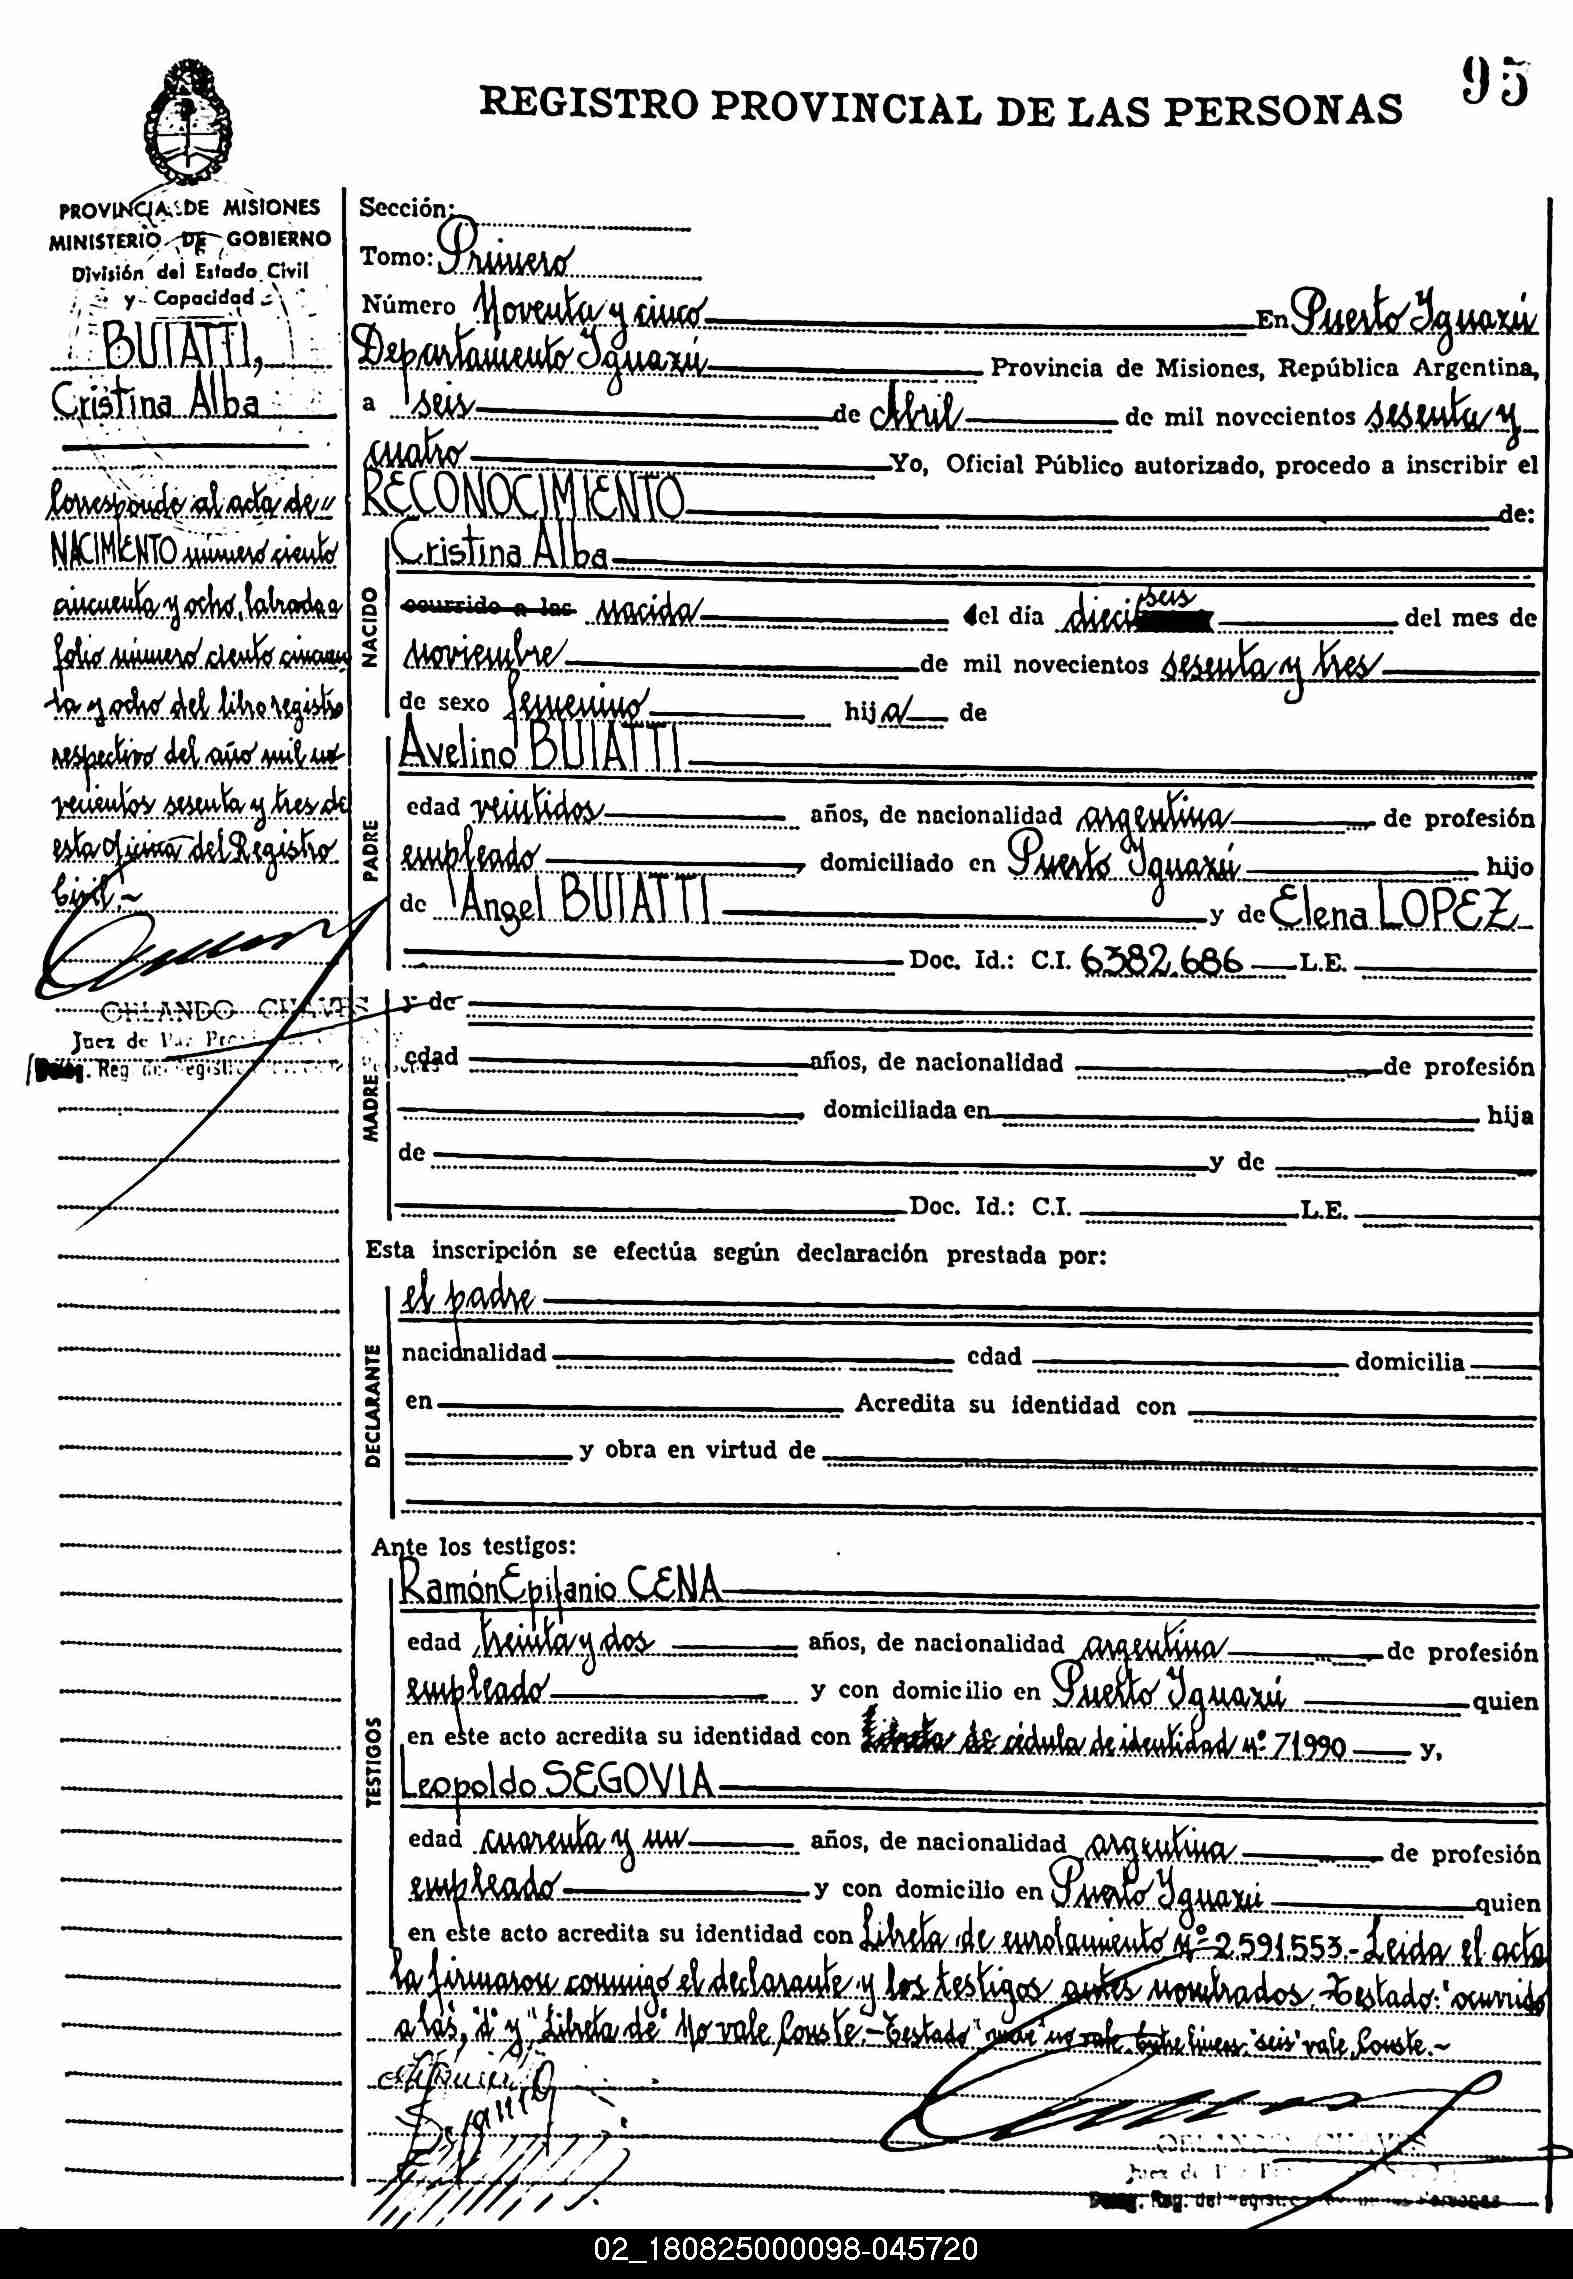 95
REGISTRO PROVINCIAL DE LAS PERSONAS
PROVINCIA DE MISIONES
MINISTERIO DE GOBIERNO
División del Estado Civil
y Capacidad
BUIATTI,
Cristina Alba
Corresponde al acta de
NACIMIENTO número ciento
cincuenta y ocho, labrada a
folio número ciento cincuen
ta y ocho del libro registro
respectivo del año mil no
vecientos sesenta y tres de
esta oficina del Registro
Civil.-
ORLANDO CHAVES
Juez de Paz
Reg. del Registro
Sección:
Tomo: Primero
Número Noventa y cinco En Puerto Iguazú
Departamento Iguazú Provincia de Misiones, República Argentina,
a seis de Abril de mil novecientos sesenta y
cuatro Yo, Oficial Público autorizado, procedo a inscribir el
RECONOCIMIENTO de:
NACIDO
Cristina Alba
ocurrido a las nacida del día dieciseis del mes de
noviembre de mil novecientos sesenta y tres
de sexo femenino hija de
PADRE
Avelino BUIATTI
edad veintidos años, de nacionalidad argentina de profesión
empleado, domiciliado en Puerto Iguazú hijo
de Angel BUIATTI y de Elena LOPEZ
Doc. Id.: C.I. 6382.686 L.E.
MADRE
y de
edad años, de nacionalidad de profesión
, domiciliada en hija
de y de
Doc. Id.: C.I. L.E.
Esta inscripción se efectúa según declaración prestada por:
DECLARANTE
el padre
nacionalidad edad domicilia
en Acredita su identidad con
y obra en virtud de
Ante los testigos:
TESTIGOS
Ramón Epifanio CENA
edad treinta y dos años, de nacionalidad argentina de profesión
empleado y con domicilio en Puerto Iguazú quien
en este acto acredita su identidad con Libreta de cédula de identidad nº 71990 y,
Leopoldo SEGOVIA
edad cuarenta y un años, de nacionalidad argentina de profesión
empleado y con domicilio en Puerto Iguazú quien
en este acto acredita su identidad con Libreta de enrolamiento nº 2.591.553.- Leida el acta
la firmaron conmigo el declarante y los testigos antes nombrados.- Testado: "ocurrido
a las", "d" y "Libreta de" No vale, Conste.- Testado "nueve" no vale. Entre lineas: "seis" vale, Conste.-
ORLANDO CHAVES
Juez de Paz
Reg. del Registro Personas
02_180825000098-045720